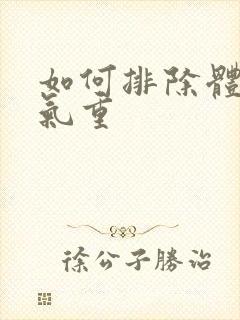 如何排除體
氣重
徐公子勝治